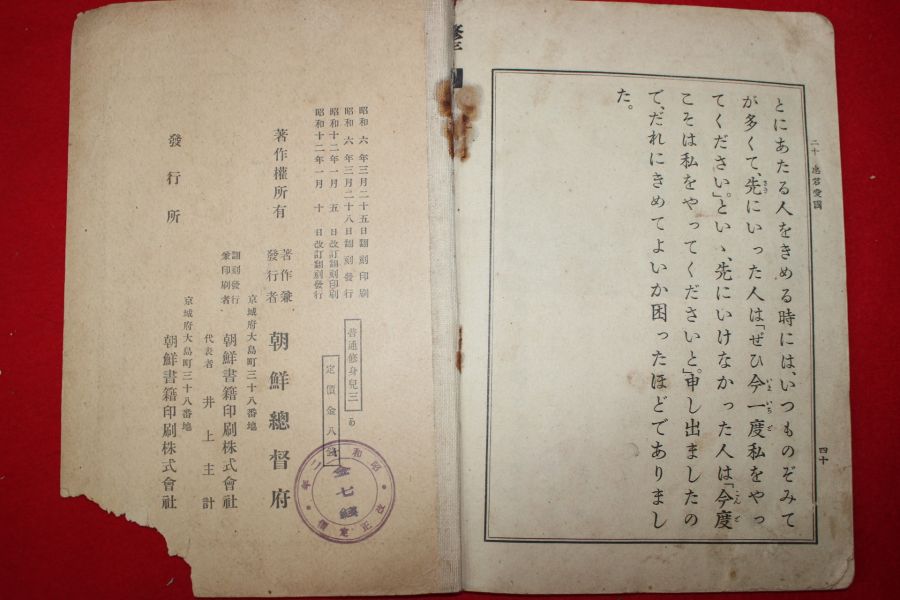 二十 忠君愛國
四十
とにあたる人をきめる時には、いつものぞみて
が多くて、先にいった人は「ぜひ今一度私をやっ
てください。」といゝ、先にいけなかった人は「今度
こそは私をやってくださいと。」申し出ましたの
で、だれにきめてよいか困ったほどでありまし
た。
昭和六年三月二十五日飜刻印刷
昭和六年三月二十八日飜刻發行
昭和十二年一月五日改訂飜刻印刷
昭和十二年一月十日改訂飜刻發行
普通修身兒三
あ
定價金八錢
昭和十二年
金七錢
改正定價
著作權所有
著作兼
發行者
朝鮮總督府
京城府大島町三十八番地
飜刻發行
兼印刷者
朝鮮書籍印刷株式會社
代表者 井上主計
京城府大島町三十八番地
發行所
朝鮮書籍印刷株式會社